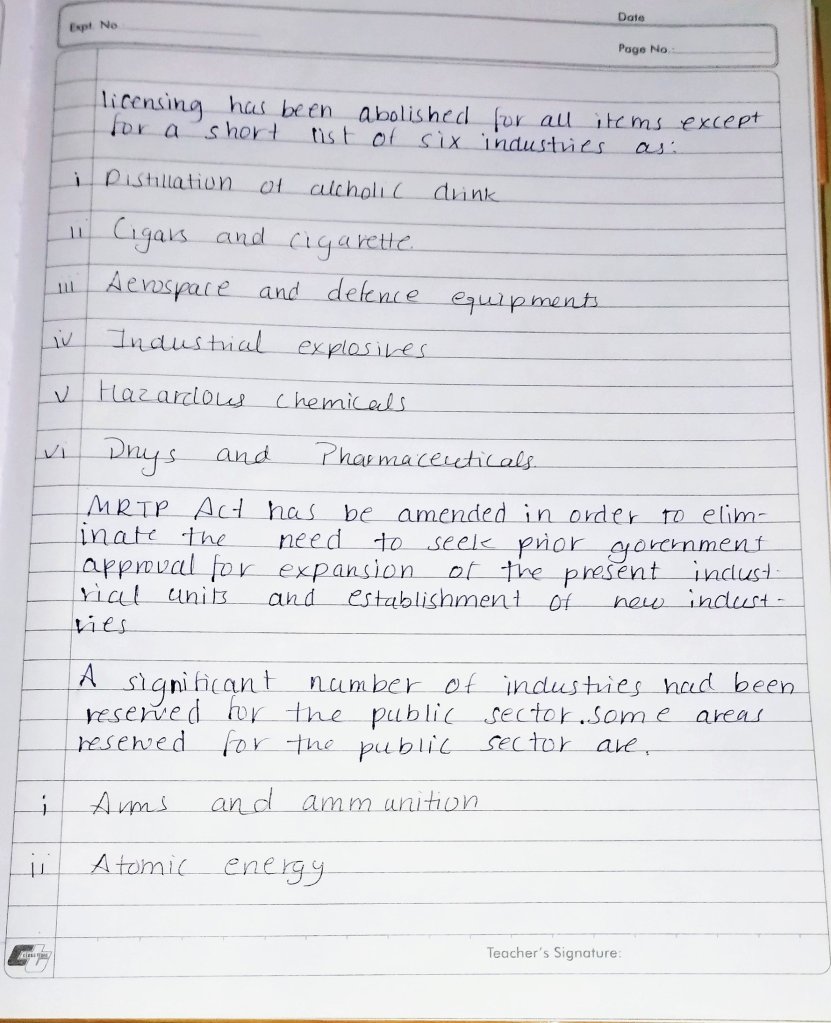 Expt. No.
Date
Page No.:
licensing has been abolished for all items except
for a short list of six industries as:
i Distillation of alcholic drink
ii Cigars and cigarette.
iii Aerospace and defence equipments
iv Industrial explosives
v Hazardous chemicals
vi Drugs and Pharmaceuticals.
MRTP Act has be amended in order to elim-
inate the need to seek prior government
approval for expansion of the present indust-
rial units and establishment of new indust-
ries
A significant number of industries had been
reserved for the public sector. some areas
reserved for the public sector are.
i Arms and ammunition
ii Atomic energy
Teacher's Signature: